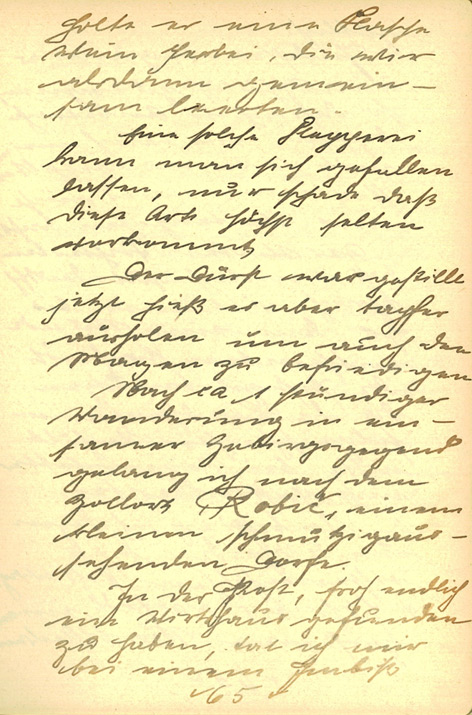 holte er eine Flasche
Wein herbei, die wir
alsdann gemein-
sam leerten.
Eine solche
kann man sich gefallen
lassen, nur schade daß
diese Art höchst selten
vorkommt
Der Durst war gestillt
jetzt hieß es aber tapfer
ausholen um auch den
Magen zu befriedigen
Nach ca 1 stündiger
Wanderung in ein-
samer Gebirgsgegend
gelang ich nach dem
Zollort Robič, einem
kleinen schmutzigaus-
sehenden Dorfe.
In der Post, froh endlich
ein Wirtshaus gefunden
zu haben, tat ich mir
bei einem Imbiß
65